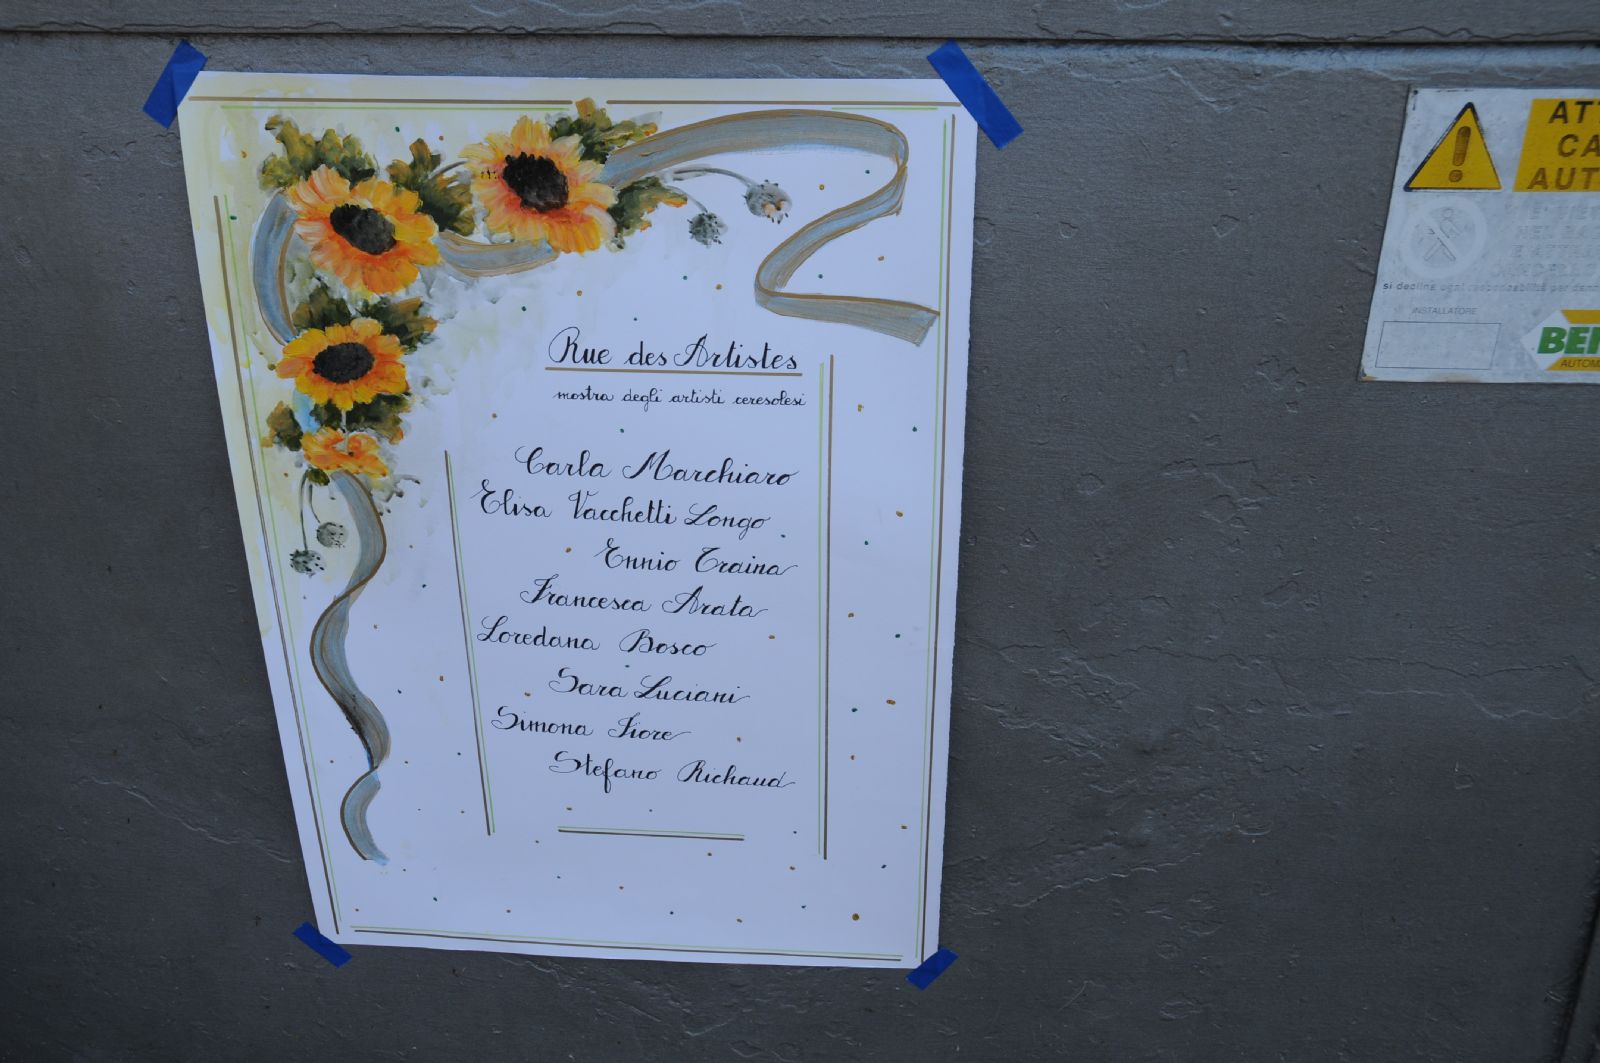 Rue des Artistes
mostra degli artisti ceresolesi
Carla Marchiaro
Elisa Vacchetti Longo
Ennio Traina
Francesca Arata
Loredana Bosco
Sara Luciani
Simona Fiore
Stefano Richaud
si declina ogni responsabilità per
INSTALLATORE